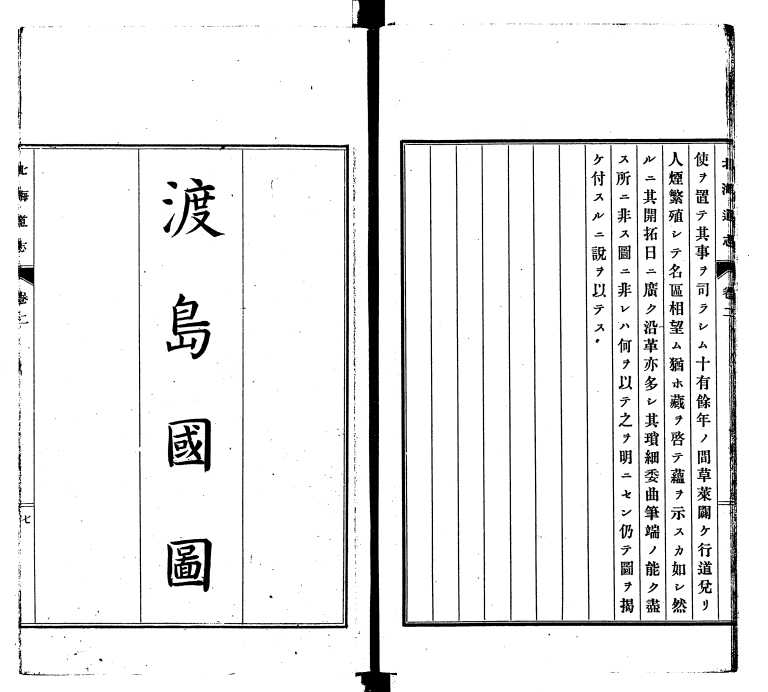 北海道志 卷二
使ヲ置テ其事ヲ司ラシム十有餘年ノ間草萊闢ケ行道兌リ
人煙繁殖シテ名區相望ム猶ホ藏ヲ啓テ蘊ヲ示スカ如シ然
ルニ其開拓日ニ廣ク沿革亦多シ其瑣細委曲筆端ノ能ク盡
ス所ニ非ス圖ニ非レハ何ヲ以テ之ヲ明ニセン仍テ圖ヲ揭
ケ付スルニ說ヲ以テス
渡島國圖
北海道志 卷二 七